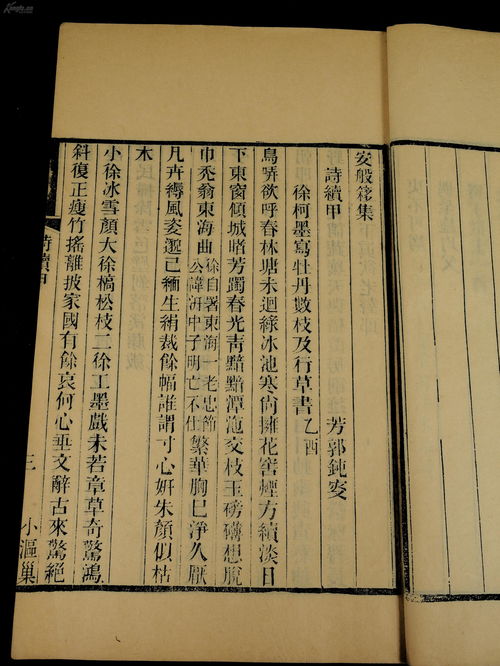 安般簃集
詩續甲 芳郭鈍叜
徐柯墨寫牡丹數枝及行草書乙酉
鳥哢欲呼春林塘未迴綠冰池寒尙擁花窖煙方續淡日
下東窗傾城睹芳躅春光靑黯黯潭沲交枝玉磅礴想脫
巾禿翁東海曲徐自署東海一老忠節公諱汧中子明亡不仕繁華胸已淨久厭
凡卉縟風姿邈已緬生絹裁餘幅誰謂寸心姸朱顏似枯
木
小徐冰雪顏大徐槁松枝二徐工墨戲未若章草奇驚鴻
斜復正瘦竹搖離披家國有餘哀何心垂文辭古來驚絕
詩續甲
三
小漚巢